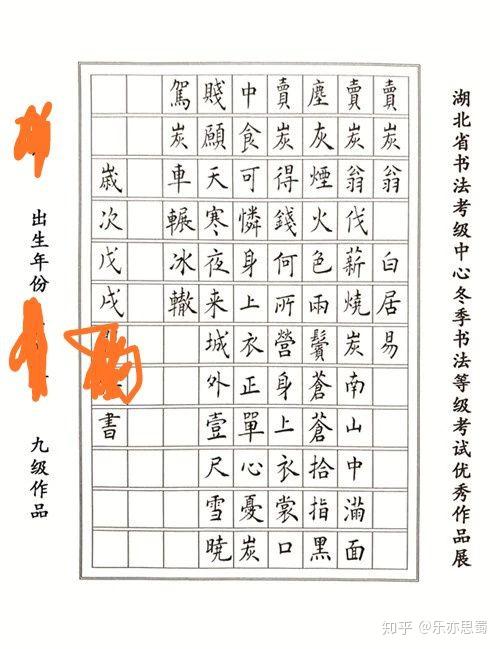 湖北省书法考级中心冬季书法等级考试优秀作品展
賣炭翁 白居易
賣炭翁伐薪燒炭南山中滿面
塵灰煙火色兩鬢蒼蒼拾指黑
賣炭得錢何所營身上衣裳口
中食可憐身上衣正單心憂炭
賤願天寒夜来城外壹尺雪曉
駕炭車輾冰轍
歲次戊戌 書
出生年份 九级作品
知乎 @乐亦思蜀